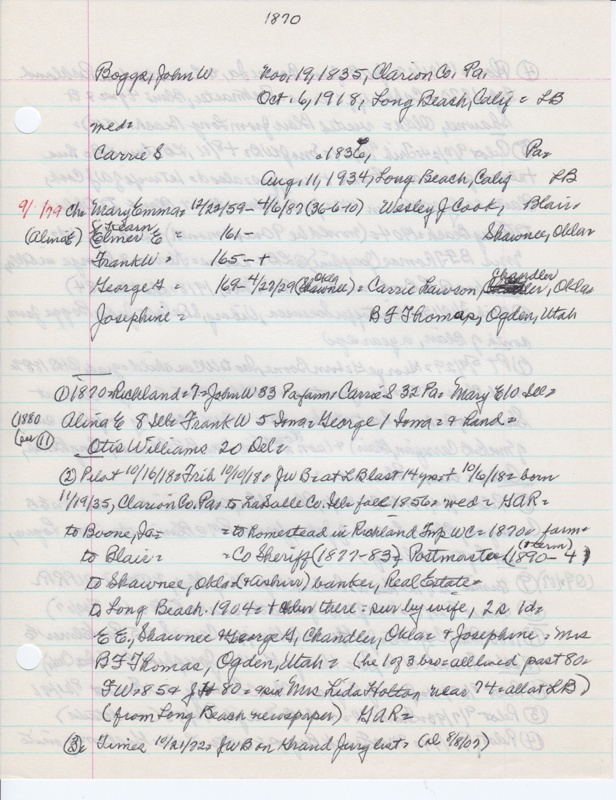 1870
Boggs, John W Nov, 19, 1835, Clarion Co, Pa,
Oct. 6, 1918, Long Beach, Calif = LB
wed=
Carrie S c1836, Pa=
Aug, 11, 1934, Long Beach, Calif LB
9/ 1/79 Ch= Mary Emma= 12/22/59 - 4/6/87 (36-6-10) Wesley J Cook, Blair=
& Fearn
(Alma E) Elmer E = 161- Shawnee, Okla=
Frank W = 165-+
George G = 169- 4/27/29 (Shawnee Okla) = Carrie Lawson, Chandler, Okla=
Josephine = B F Thomas, Ogden, Utah
(1) 1870=Richland=7=John W 33 Pa=farm= Carrie S 32 Pa= Mary E 10 Ill=
(1880 (see (11) Alina E 8 Ill= Frank W 5 Iowa= George 1 Iowa= + hand=
Otis Williams 20 Del=
(2) Pilot 10/16/18= Trib 10/10/18= JWB=at LB last 14 yrs+ 10/6/18= born
11/19/35, Clarion Co. Pa= to LaSalle Co. Ill= fall 1856= wed= GAR=
to Boone, Ia= =to homestead in Richland Tmp WC=1870= farm=
to Blair= =Co Sheriff (1877-83)= Postmaster (1890-4) (+ term)
to Shawnee, Okla banker, Real Estate=
to Long Beach. 1904= + there = sur by wife, 2s 1d=
E E, Shawnee + George G, Chandler, Okla= + Josephine = Mrs
B F Thomas, Ogden, Utah= (he 1 of 3 bro=all lived past 80=
FW=85+ J 80= + sis Mrs Lida Holton, near 74=all at LB)
(from Long Beach newspaper) GAR=
(3) Times 10/21/72= JWB on Grand Jury list= (d. 8/8/07)